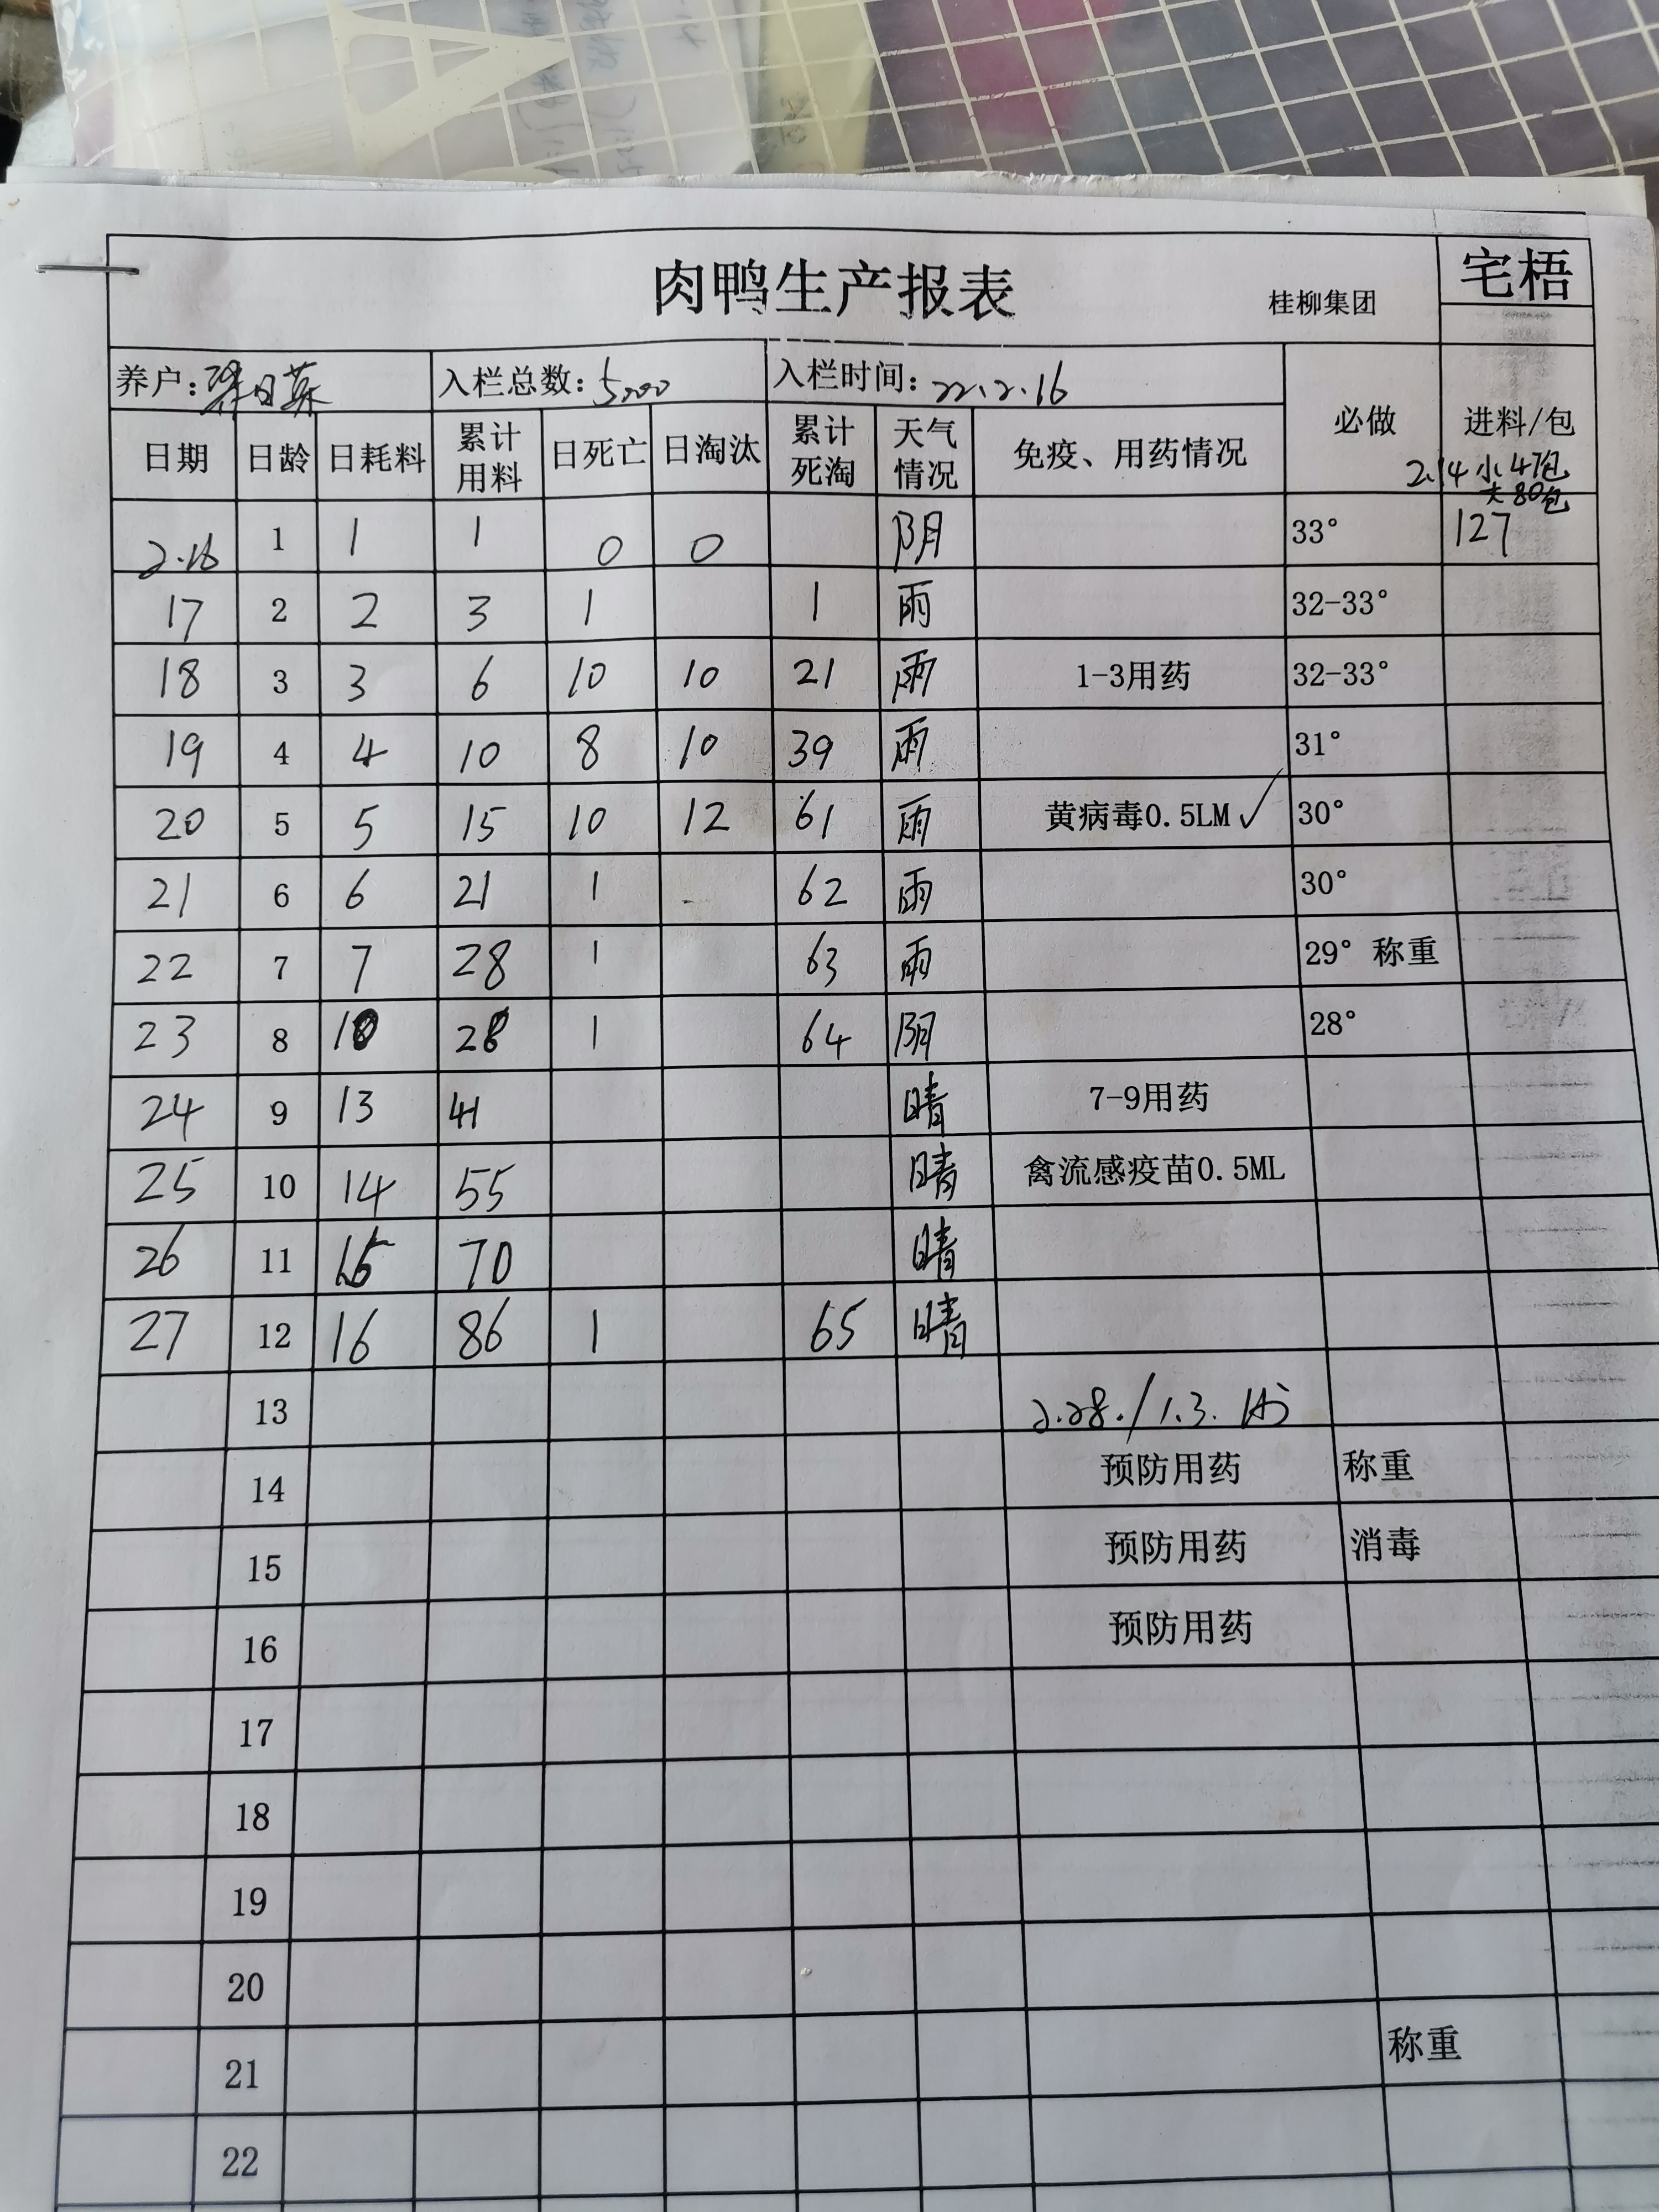 肉鸭生产报表 桂柳集团 宅梧
养户: 入栏总数:5000 入栏时间:22.2.16
日期 日龄 日耗料 累计用料 日死亡 日淘汰 累计死淘 天气情况 免疫、用药情况 必做 进料/包
2.14 小47包
大80包
2.16 1 1 1 0 0 阴 33° 127
17 2 2 3 1 1 雨 32-33°
18 3 3 6 10 10 21 雨 1-3用药 32-33°
19 4 4 10 8 10 39 雨 31°
20 5 5 15 10 12 61 雨 黄病毒0.5LM✓ 30°
21 6 6 21 1 62 雨 30°
22 7 7 28 1 63 雨 29° 称重
23 8 10 28 1 64 阴 28°
24 9 13 41 晴 7-9用药
25 10 14 55 晴 禽流感疫苗0.5ML
26 11 15 70 晴
27 12 16 86 1 65 晴
13 2.28./1.3.
14 预防用药 称重
15 预防用药 消毒
16 预防用药
17
18
19
20
21 称重
22